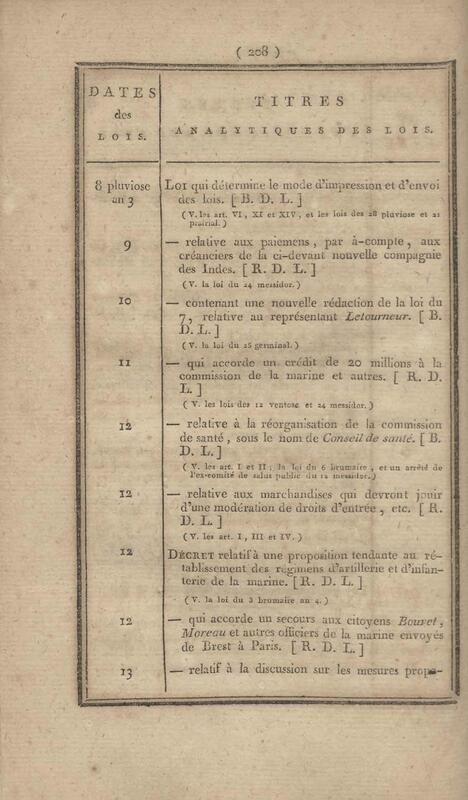 ( 208 )
DATES
des
LOIS.
TITRES
ANALYTIQUES DES LOIS.
8 pluviose
an 3
LOI qui détermine le mode d'impression et d'envoi
des lois. [ B. D. L. ]
( V. les art. VI, XI et XIV, et les lois des 28 pluviose et 21
prairial. )
9
— relative aux paiemens, par à-compte, aux
créanciers de la ci-devant nouvelle compagnie
des Indes. [ R. D. L. ]
( V. la loi du 24 messidor. )
10
— contenant une nouvelle rédaction de la loi du
7, relative au représentant Letourneur. [ B.
D. L. ]
( V. la loi du 25 germinal. )
11
— qui accorde un crédit de 20 millions à la
commission de la marine et autres. [ R. D.
L. ]
( V. les lois des 12 ventose et 24 messidor. )
12
— relative à la réorganisation de la commission
de santé, sous le nom de Conseil de santé. [ B.
D. L. ]
( V. les art. I et II; la loi du 6 brumaire, et un arrêté de
l'ex-comité de salut public du 12 messidor. )
12
— relative aux marchandises qui devront jouir
d'une modération de droits d'entrée, etc. [ R.
D. L. ]
( V. les art. I, III et IV. )
12
DÉCRET relatif à une proposition tendante au ré-
tablissement des régimens d'artillerie et d'infan-
terie de la marine. [ R. D. L. ]
( V. la loi du 3 brumaire an 4. )
12
— qui accorde un secours aux citoyens Bouvet,
Moreau et autres officiers de la marine envoyés
de Brest à Paris. [ R. D. L. ]
13
— relatif à la discussion sur les mesures propo-